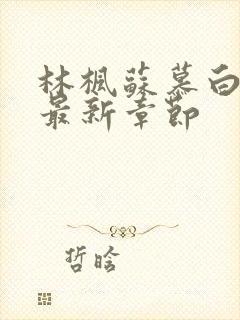 林楓蘇慕白
最新章節
哲晗